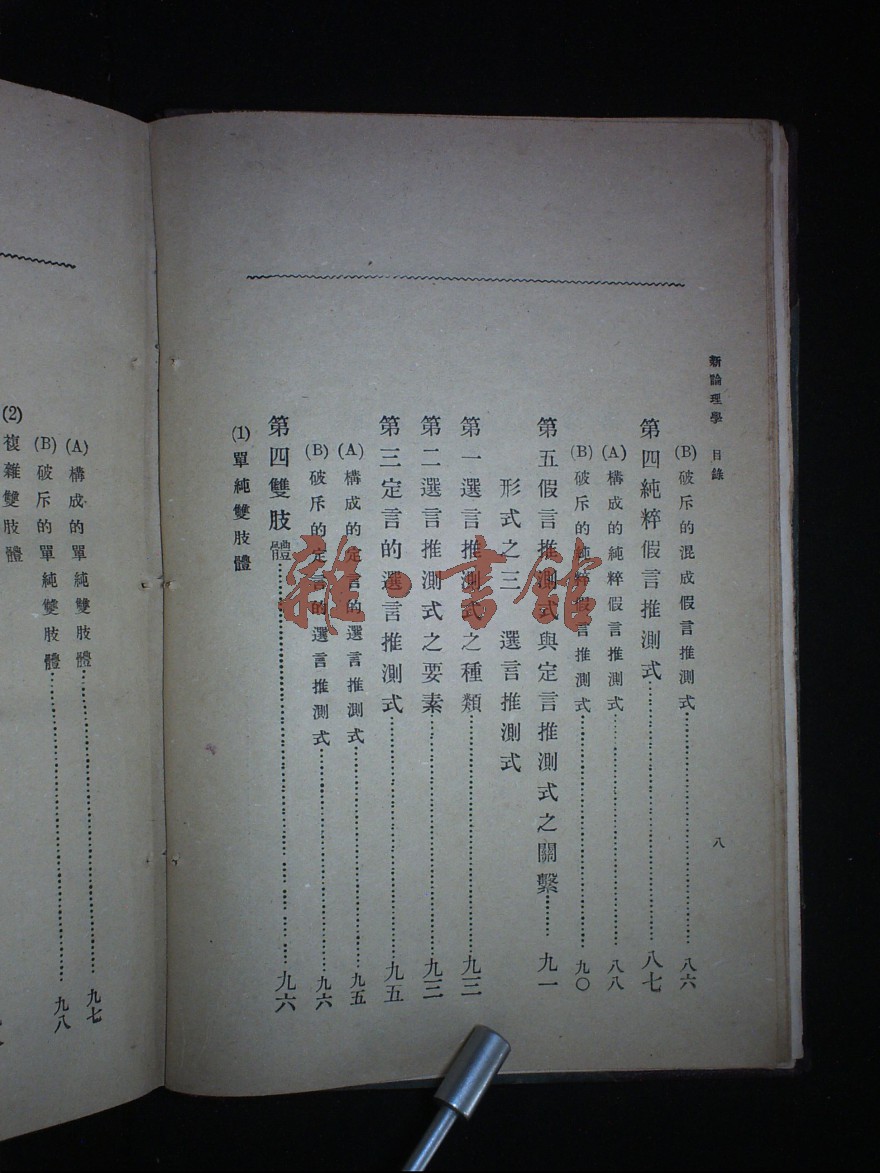 新論理學　目錄
八
(B)破斥的混成假言推測式……八六
第四純粹假言推測式……八七
(A)構成的純粹假言推測式……八八
(B)破斥的純粹假言推測式……九〇
第五假言推測式與定言推測式之關繫……九一
形式之三　選言推測式
第一選言推測式之種類……九三
第二選言推測式之要素……九三
第三定言的選言推測式……九五
(A)構成的定言的選言推測式……九五
(B)破斥的定言的選言推測式……九六
第四雙肢體……九六
(1)單純雙肢體
(A)構成的單純雙肢體……九七
(B)破斥的單純雙肢體……九八
(2)複雜雙肢體
雜·書館